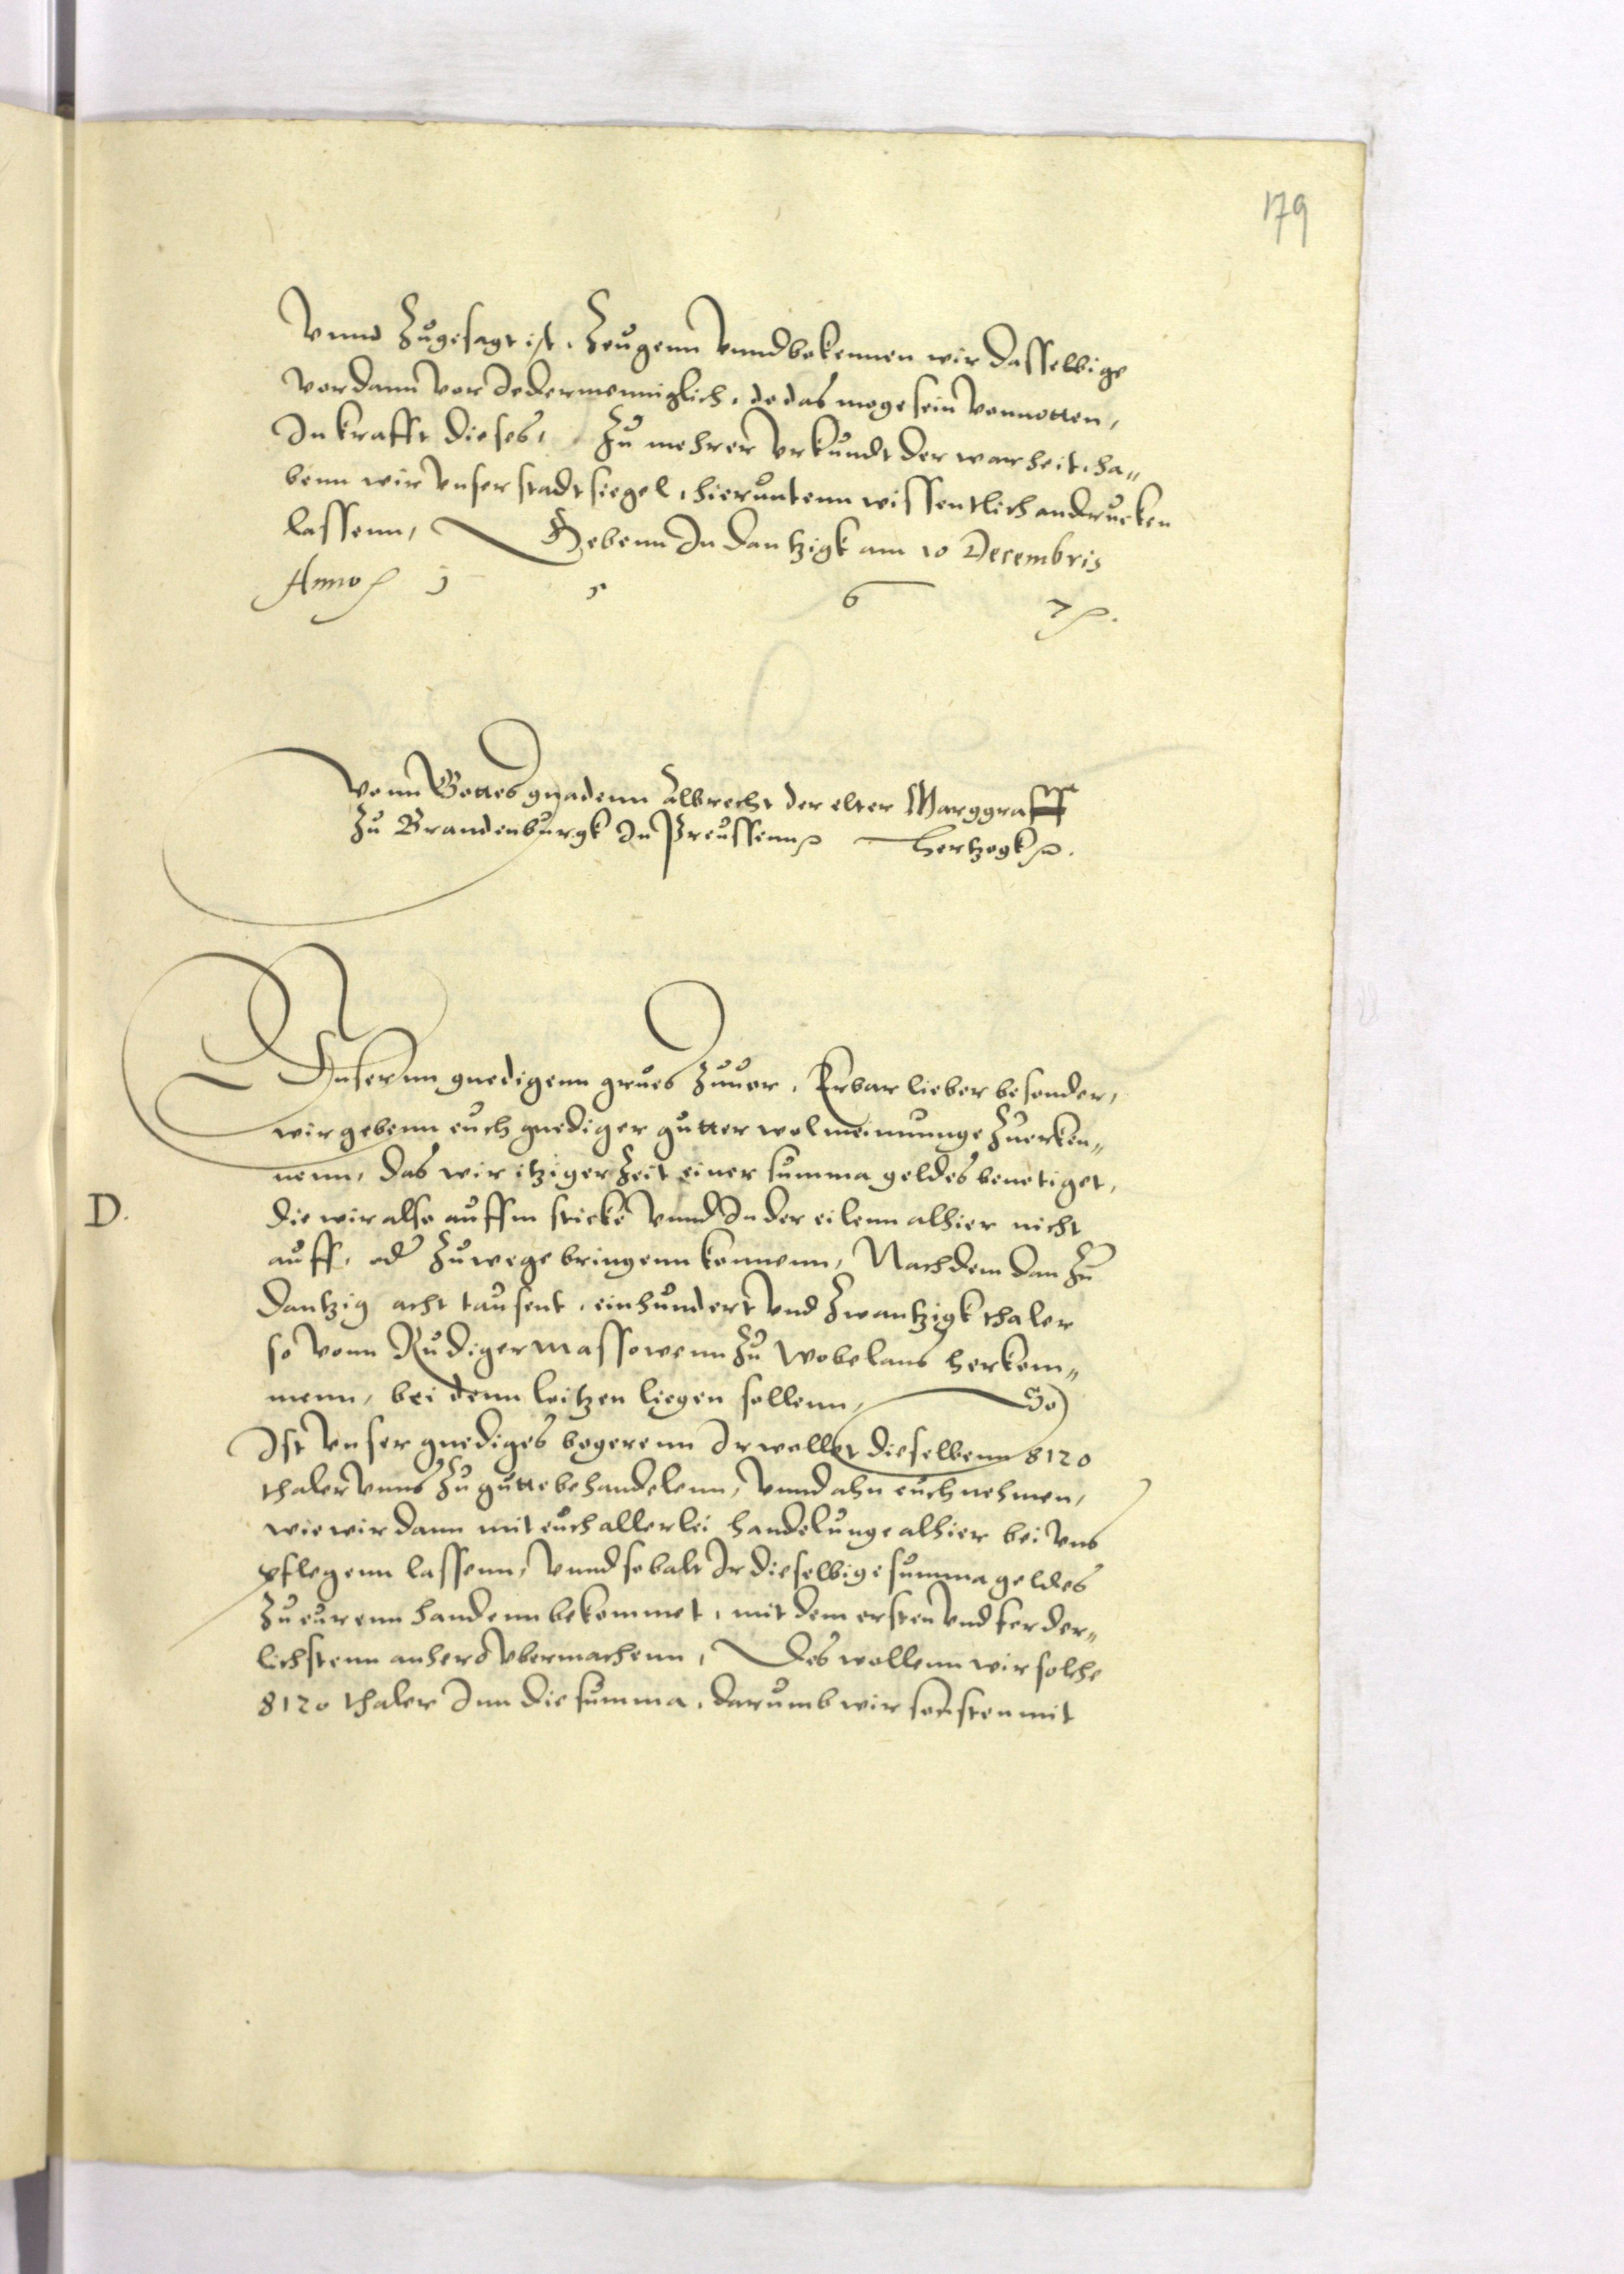 179
Vnnd Zugesagt ist, Zeugenn Vnnd bekennen wir dasselbige
vor dann vor Jedermenniglich, do das moge sein vonnotten,
In krafft dieses, Zu mehrer Vrkundt der warheit, ha„
benn wir Vnser stadt siegel, hieruntenn wissentlich andrucken
lassenn, Gebenn In Dantzigk am 10 Decembris
Anno 1 5 6 7.
Vonn Gottes gnadenn Albrecht der elter Marggraff
Zu Brandenburgk In Preussenn Hertzogk.
Vnsernn gnedigenn grues Zuuor, Erbar lieber besonder,
wir gebenn euch gnediger gutter wolmeinunge Zuerken„
nenn, das wir itziger Zeit einer summa geldes benotiget,
D.
die wir also auffm sticke Vnnd In der eilenn alhier nicht
auff, oder Zuwege bringenn konnenn, Nach dem dan Zu
Dantzig acht tausent, einhundert Vnd Zwantzigk thaler
so vonn Rudiger Massowenn Zu Wobelans herkom„
menn, bei denn Loitzen liegen sollenn, So
Ist Vnser gnediges begerenn Ir wollet dieselbenn 8120
thaler Vnns Zu gutte behandelenn, Vnnd ahn euch nehmen,
wie wir dann mit euch allerlei handelunge alhier bei Vns
pflegenn lassenn, Vnnd so balt Ir dieselbige summa geldes
Zu eurenn handenn bekommet, mit dem ersten Vnd forder„
lichstenn anhero Vbermachenn, Des wollenn wir solche
8120 thaler Inn die summa, darumb wir sonsten mit